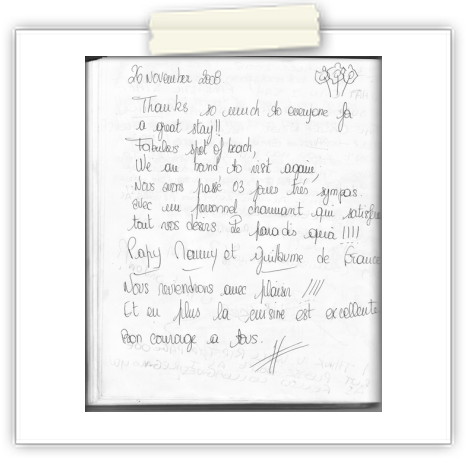 26 November 2008
Thanks so much to everyone for
a great stay!!
Fabulous spot of beach,
We are bond to visit again,
Nous avons passé 03 jours très sympas
avec un personnel charmant qui satisfait
tout nos désirs de paradis !!!!
Papy Nanny et Guillaume de France
Nous reviendrons avec plaisir !!!!
Et en plus la cuisine est excellente
Bon courage a tous.